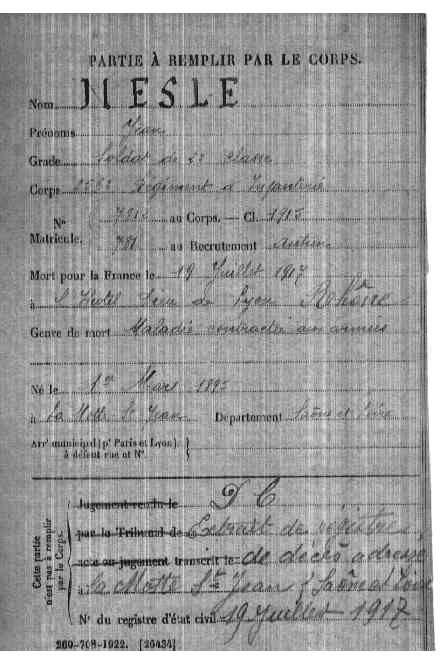 PARTIE À REMPLIR PAR LE CORPS.
Nom NESLE
Prénoms Jean
Grade Soldat de 2e classe
Corps Régiment d'Infanterie
Nº
Matricule.
au Corps. — Cl. 1915
781 au Recrutement Autun
Mort pour la France le 19 Juillet 1917
à l'Hotel Dieu de Lyon Rhône
Genre de mort Maladie contractée aux armées
Né le 1er Mars 1895
à La Motte St Jean Département Saône et Loire
Arrt municipal (pr Paris et Lyon),
à défaut rue et Nº.
Cette partie
n'est pas à remplir
par le Corps.
Jugement rendu le D C
par le Tribunal de Extrait de registre
acte ou jugement transcrit le de décès adressé
à la Motte St Jean (Saône et Loire
Nº du registre d'état civil 19 Juillet 1917
260-708-1922. [26434]